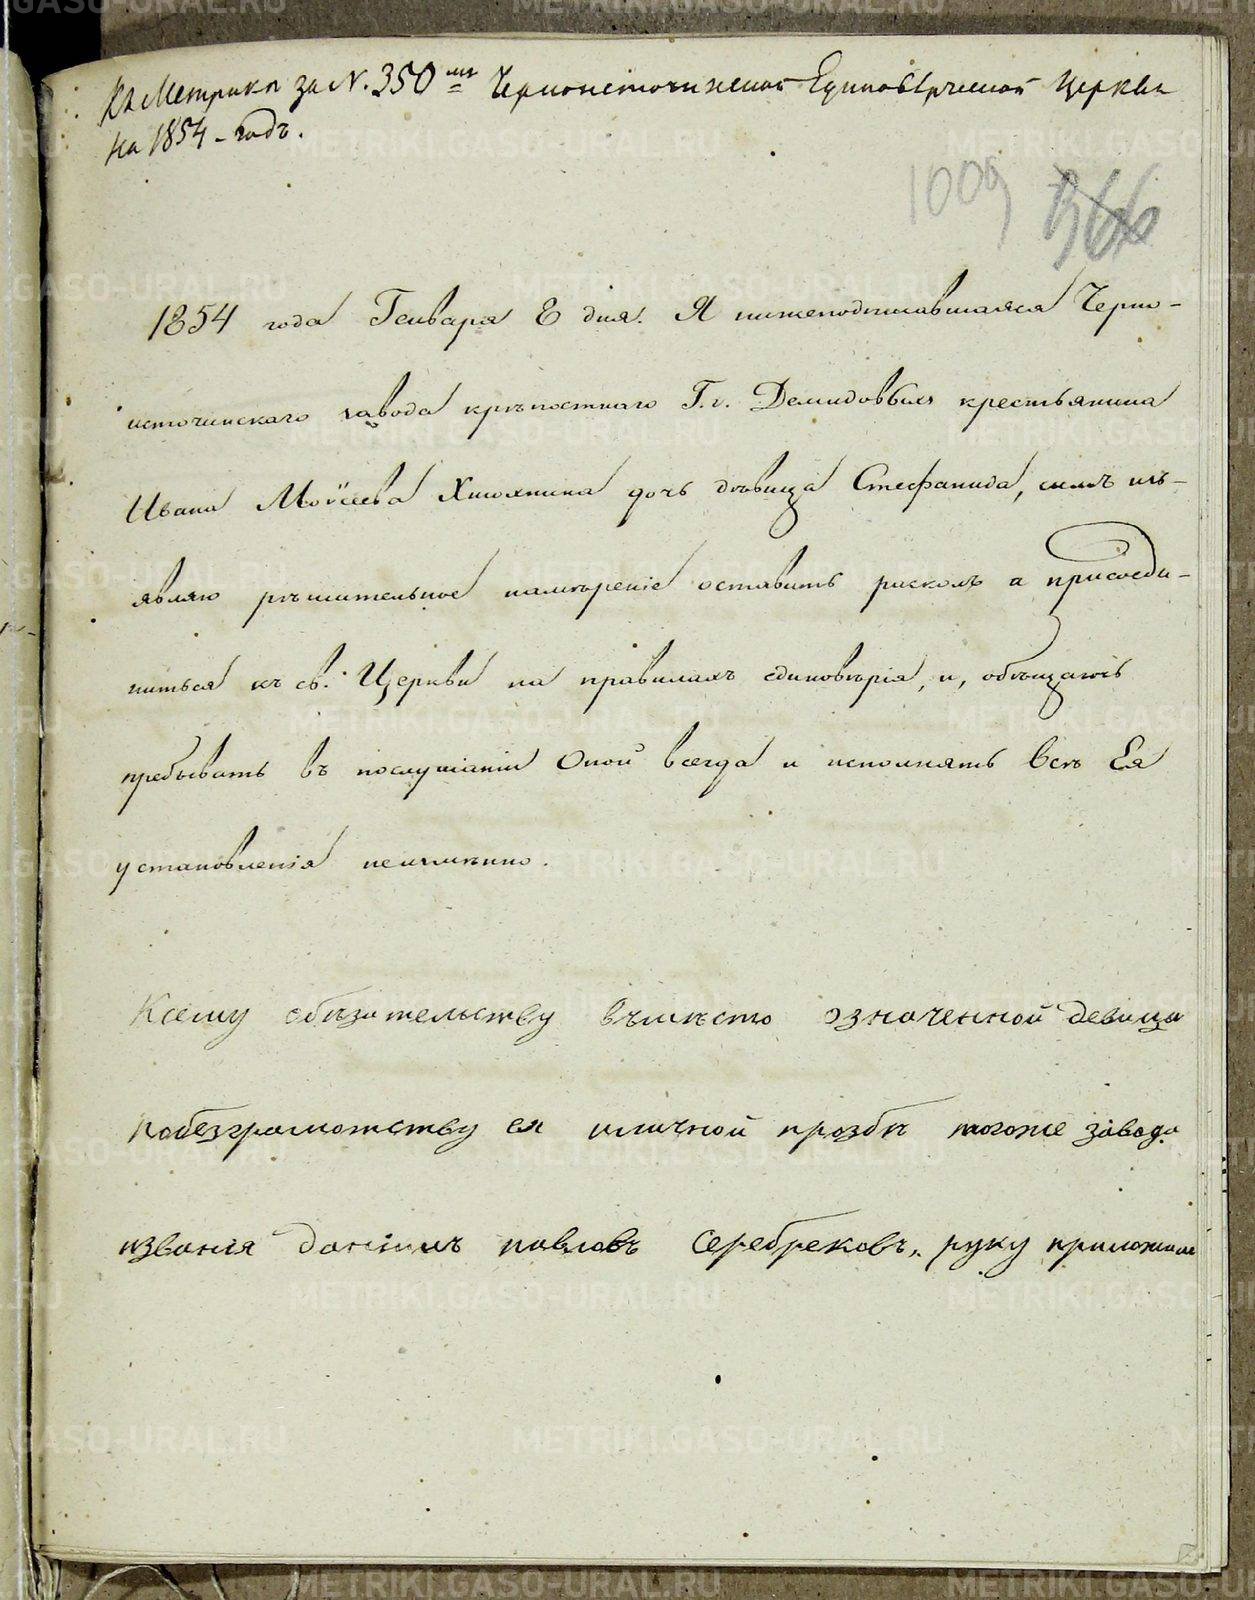 Къ Метрикѣ за N. 350мъ Черноисточинской Единовѣрческой Церкви
на 1854-годъ.
1009 366
1854 года Генваря 8 дня. Я нижеподписавшаяся Черно-
источинскаго завода крѣпостнаго Г.г. Демидовыхъ крестьянина
Ивана Моѵсеева Хнюнина дочь дѣвица Стефанида, симъ изъ-
являю рѣшительное намѣреніе оставить расколъ а присоеди-
ниться къ св. Церкви на правилахъ единовѣрія, и, обѣщаюсь
пребывать въ послушаніи Оной всегда и исполнять всѣ Ея
установленія неизмѣнно.
Ксему обязательству вѣмѣсто означенной девицы
побезграмотству ея иличной прозбѣ тогоже завода
извания павловъ Серебрековъ, руку приложилъ
METRIKI.GASO-URAL.RU